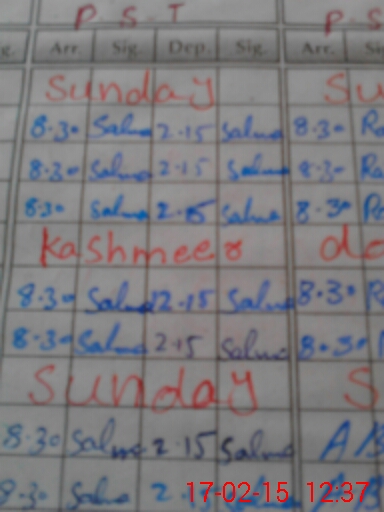 P S T P S
g. Arr. Sig. Dep. Sig. Arr. Sig
Sunday Su
8.30 Salma 2.15 Salma 8.30 Ra
8.30 Salma 2.15 Salma 8.30 Ra
8.30 Salma 2.15 Salma 8.30 Ra
Kashmeer da
8.30 Salma 2.15 Salma 8.30 R
8.30 Salma 2.15 Salma 8.30 R
Sunday S
8.30 Salma 2.15 Salma A/B
8.30 Salma 2.15 Salma A/B
17-02-15 12:37